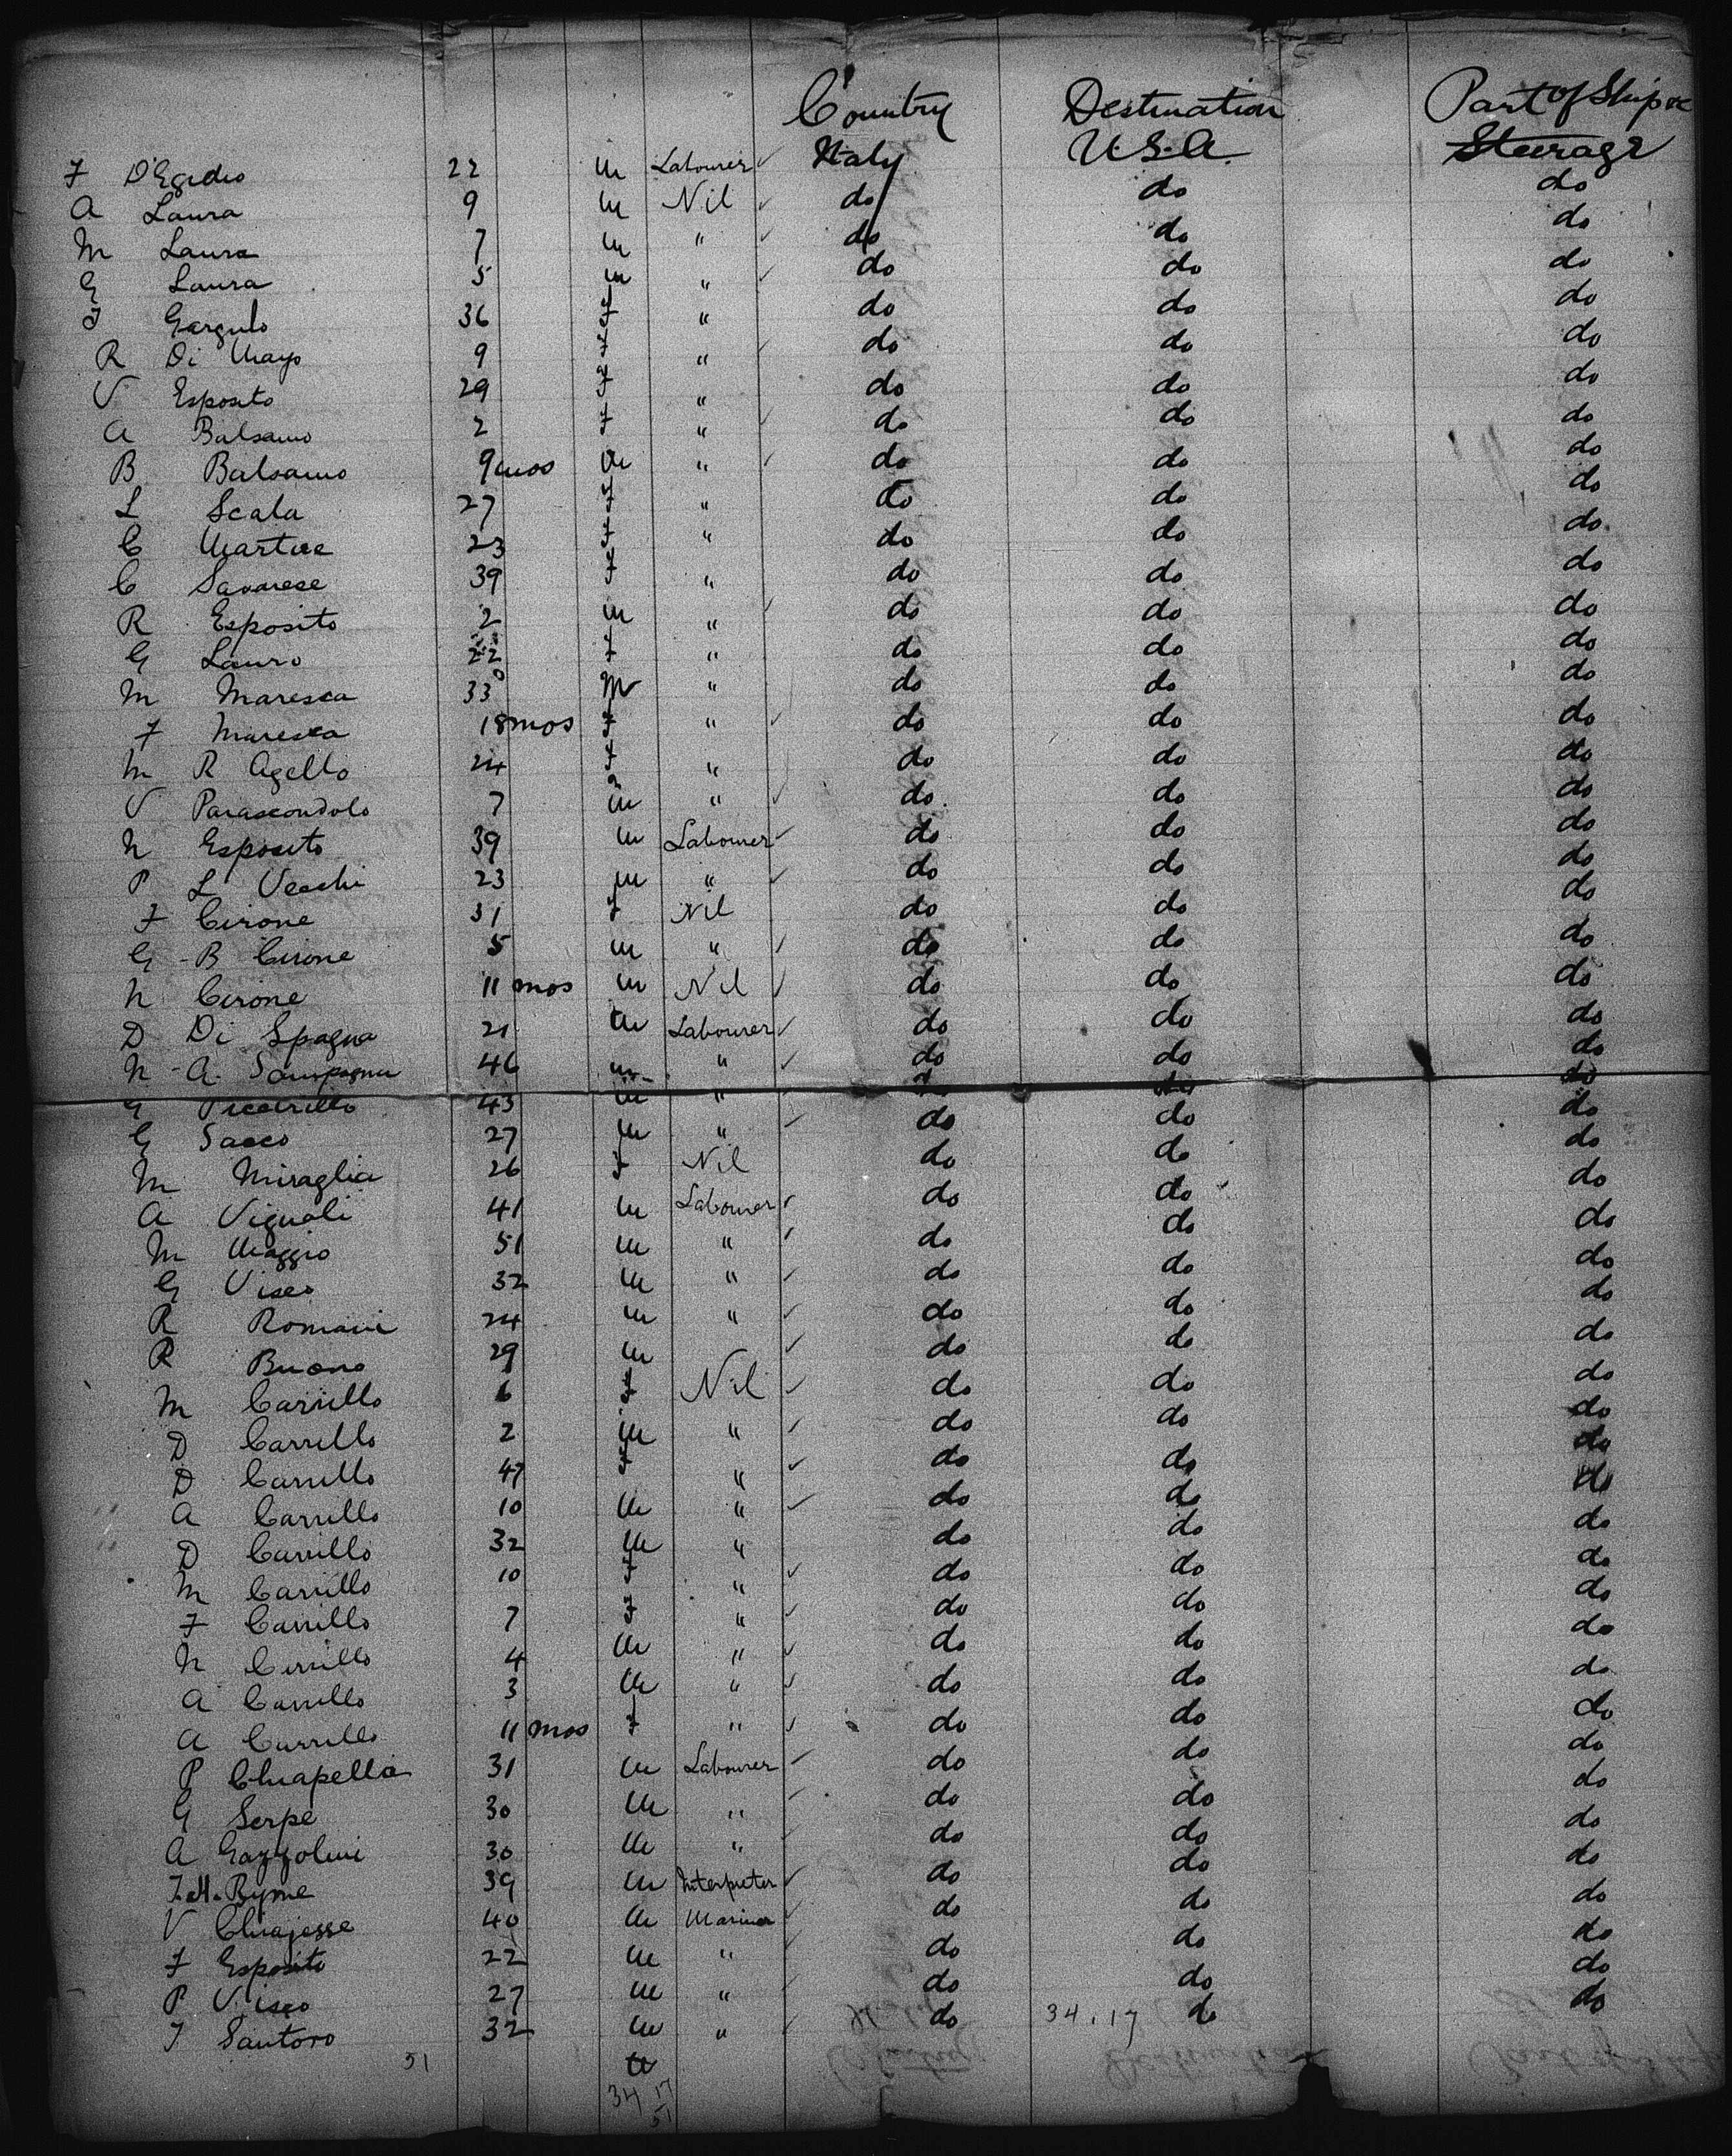 Country Destination Part of Ship &c
F D'Egidio 22 m Labourer Italy U.S.A. Steerage
A Laura 9 m Nil do do do
M Laura 7 m " do do do
G Laura 5 m " do do do
J Gargulo 36 f " do do do
R Di Mayo 9 f " do do do
V Esposito 29 f " do do do
A Balsamo 2 f " do do do
B Balsamo 9 mos m " do do do
L Scala 27 f " do do do
C 23 f " do do do
C Savarese 39 f " do do do
R Esposito 2 m " do do do
G Lauro 22 f " do do do
M Maresca 33 M " do do do
F Maresca 18 mos f " do do do
M R Agello 24 f " do do do
V Parascondolo 7 m " do do do
N Esposito 39 m Labourer do do do
P L Vecchi 23 m " do do do
F Cirone 31 f Nil do do do
G B Cirone 5 m " do do do
N Cirone 11 mos m Nil do do do
D Di Spagna 21 m Labourer do do do
N A 46 m " do do do
G 43 m " do do do
G Sacco 27 m " do do do
M Miraglia 26 f Nil do do do
A Vignali 41 m Labourer do do do
M Maggio 51 m " do do do
G Visco 32 m " do do do
R Romani 24 m " do do do
R Buono 29 m do do do
M Carrillo 6 f Nil do do do
D Carrillo 2 m " do do do
D Carrillo 47 f " do do do
A Carrillo 10 m " do do do
D Carrillo 32 m " do do do
M Carrillo 10 f " do do do
F Carrillo 7 f " do do do
N Cirrillo 4 m " do do do
A Carrillo 3 m " do do do
A Carrillo 11 mos f " do do do
P Chiapella 31 m Labourer do do do
G Serpe 30 m " do do do
A Gazzolini 30 m " do do do
J. H. Byrne 39 m Interpreter do do do
V Chiajesse 40 m Mariner do do do
F Esposito 22 m " do do do
P Visco 27 m " do do do
J Santoro 32 m " do 34.17 do do
51
34 17
51